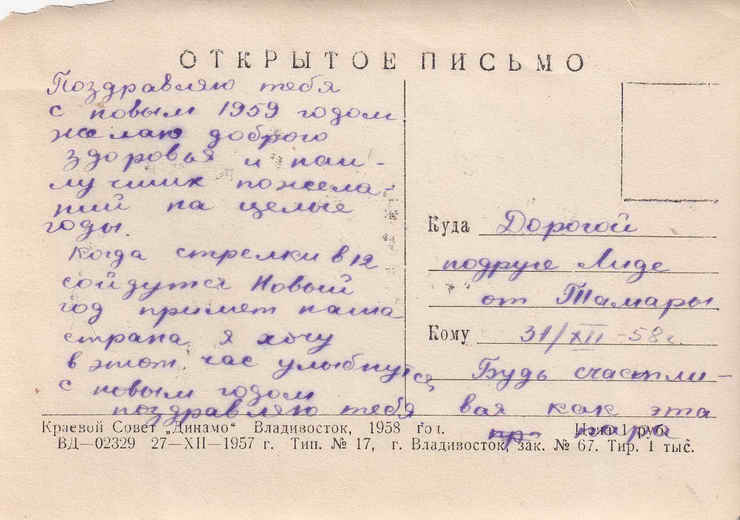 ОТКРЫТОЕ ПИСЬМО
Поздравляю тебя
с новым 1959 годом
желаю доброго
здоровья и наи-
лучших пожела-
ний на целые
годы.
Когда стрелки в 12
сойдутся Новый
год примет наша
страна я хочу
в этот час улыбнуться,
с новым годом
поздравляю тебя
Куда Дорогой
подруге Лиде
от Тамары
Кому 31/XII-58г.
Будь счастли-
вая как эта
пара
Краевой Совет „Динамо“ Владивосток, 1958 год. Цена 1 руб.
ВД—02329 27—XII—1957 г. Тип. № 17, г. Владивосток, зак. № 67. Тир. 1 тыс.